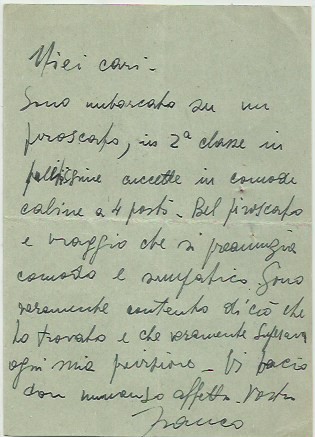 Miei cari -
Sono imbarcato su un
piroscafo, in 2ª classe in
cuccette in comode
cabine a 4 posti - Bel piroscafo
e viaggio che si preannuzia
comodo e simpatico. Sono
veramente contento di ciò che
ho trovato e che veramente superava
ogni mia previsione - Vi bacio
con immenso affetto. Vostro
Franco